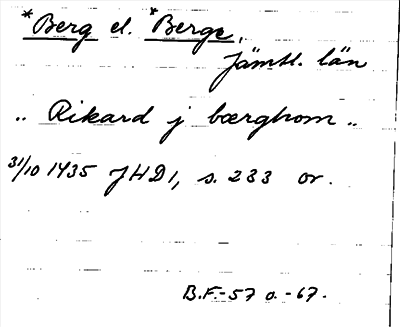 *Berg el. *Berge,
Jämtl. län
„ Rikard j bærghom „
31/10 1435 JHD 1, s. 233 or.
B.F.-57 o. -67.